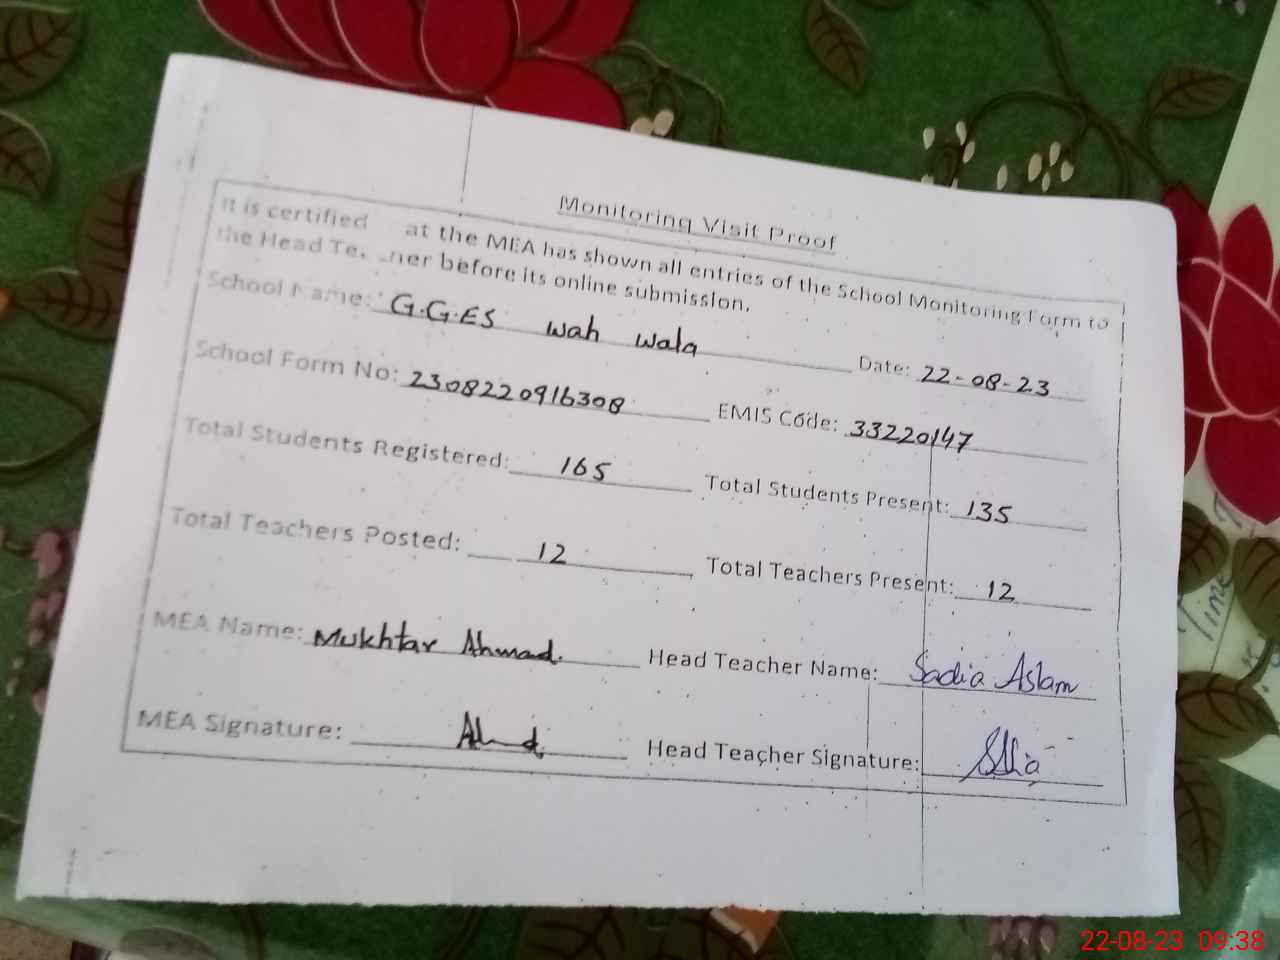 Monitoring Visit Proof
It is certified at the MEA has shown all entries of the School Monitoring Form to
the Head Te. ner before its online submission.
School Name: G.G.ES wah wala Date: 22-08-23
School Form No: 2308220916308 EMIS Code: 33220147
Total Students Registered: 165 Total Students Present: 135
Total Teachers Posted: 12 Total Teachers Present: 12
MEA Name: Mukhtar Ahmad. Head Teacher Name: Sadia Aslam
MEA Signature: Head Teacher Signature:
Time
22-08-23 09:38